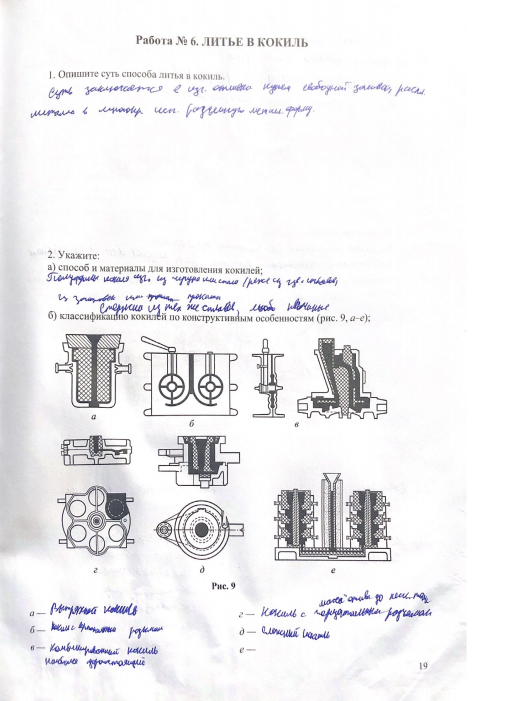 Работа № 6. ЛИТЬЕ В КОКИЛЬ
1. Опишите суть способа литья в кокиль.
Суть заключается в изг. отливки путем свободной заливки распл.
металла в многокр. исп. разъемную метал. форму.
2. Укажите:
а) способ и материалы для изготовления кокилей;
Полуформы кокиля изг. из чугуна или стали
из
Стержни из тех же сплавов, либо песчаные
б) классификацию кокилей по конструктивным особенностям (рис. 9, а–е);
а
б
в
г
д
е
Рис. 9
а — Вытряхной кокиль
б — Кокиль с разъемом
в — Комбинированный кокиль
наиболее
г — Кокиль с горизонтальным разъемом
д — Сложный кокиль
е —
19